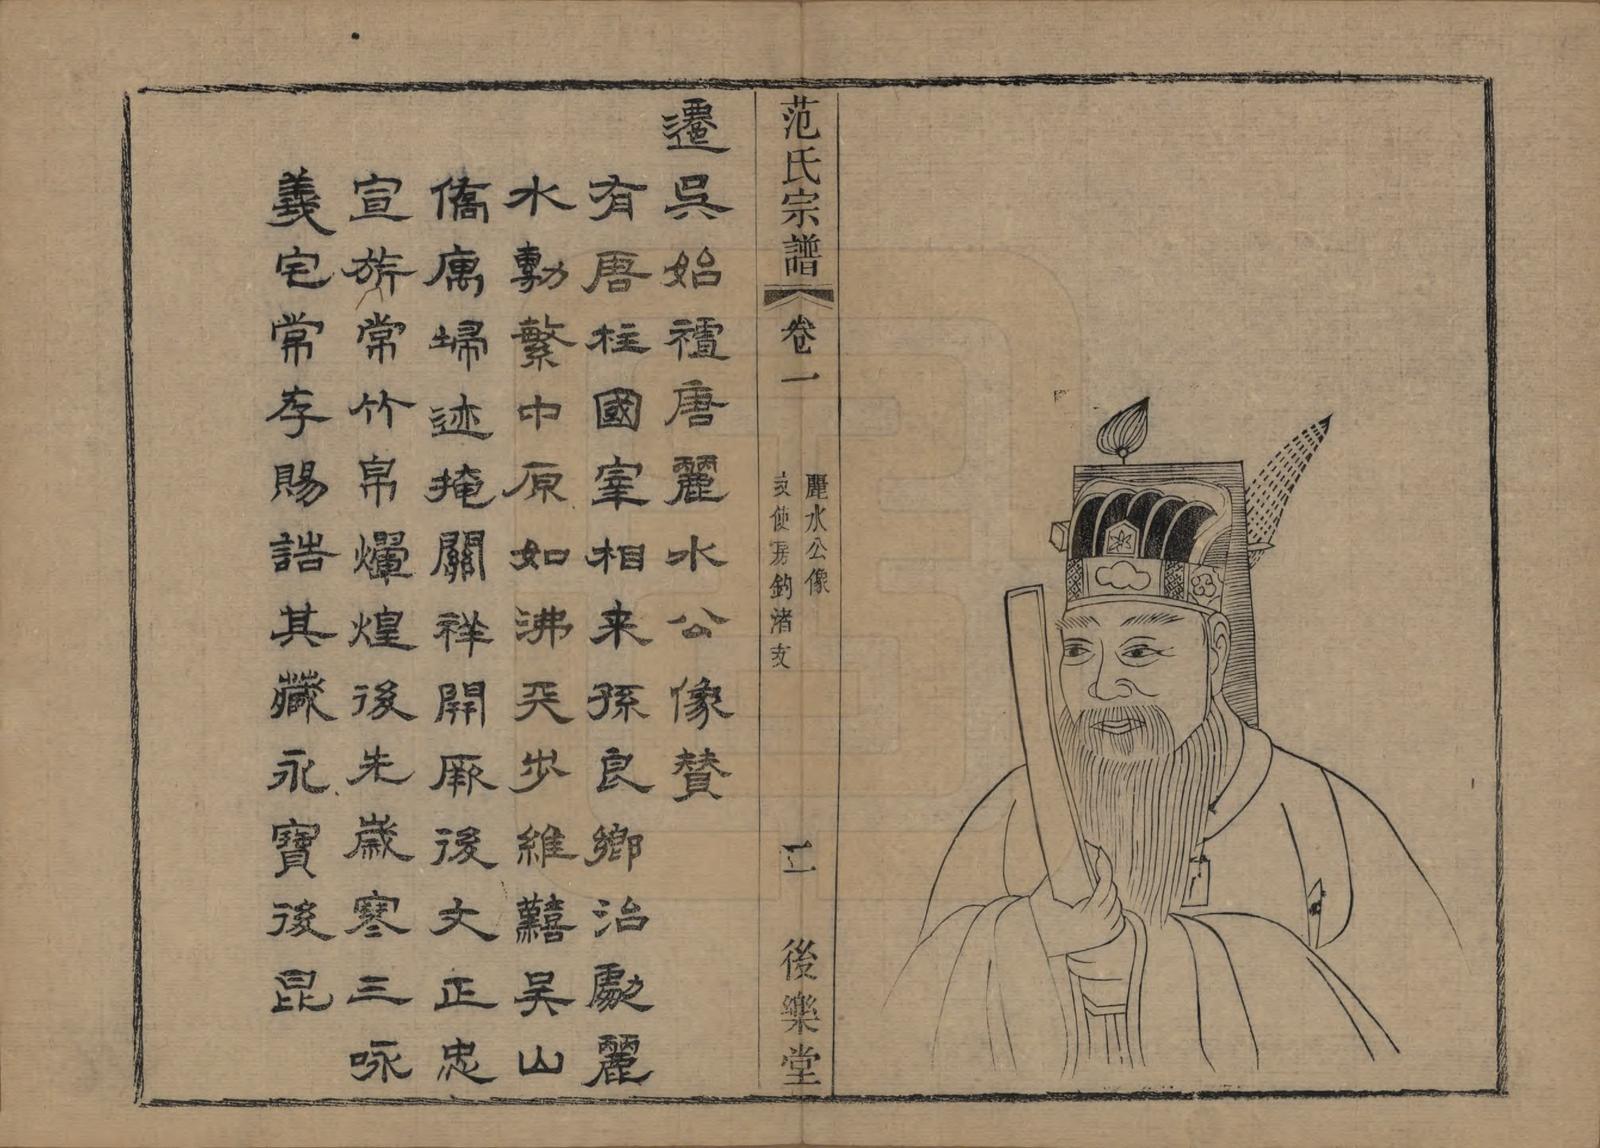 范氏宗譜
卷一
麗水公像
支使房鈞渚支
二
後樂堂
遷吳始祖唐麗水公像贊
有唐柱國宰相来孫良鄉治劇麗
水勤繁中原如沸天步維囏吳山
僑寓埽迹掩關祥開厥後文正忠
宣旂常竹帛爛煌後先歲寒三咏
義宅常存賜誥其藏永寶後昆